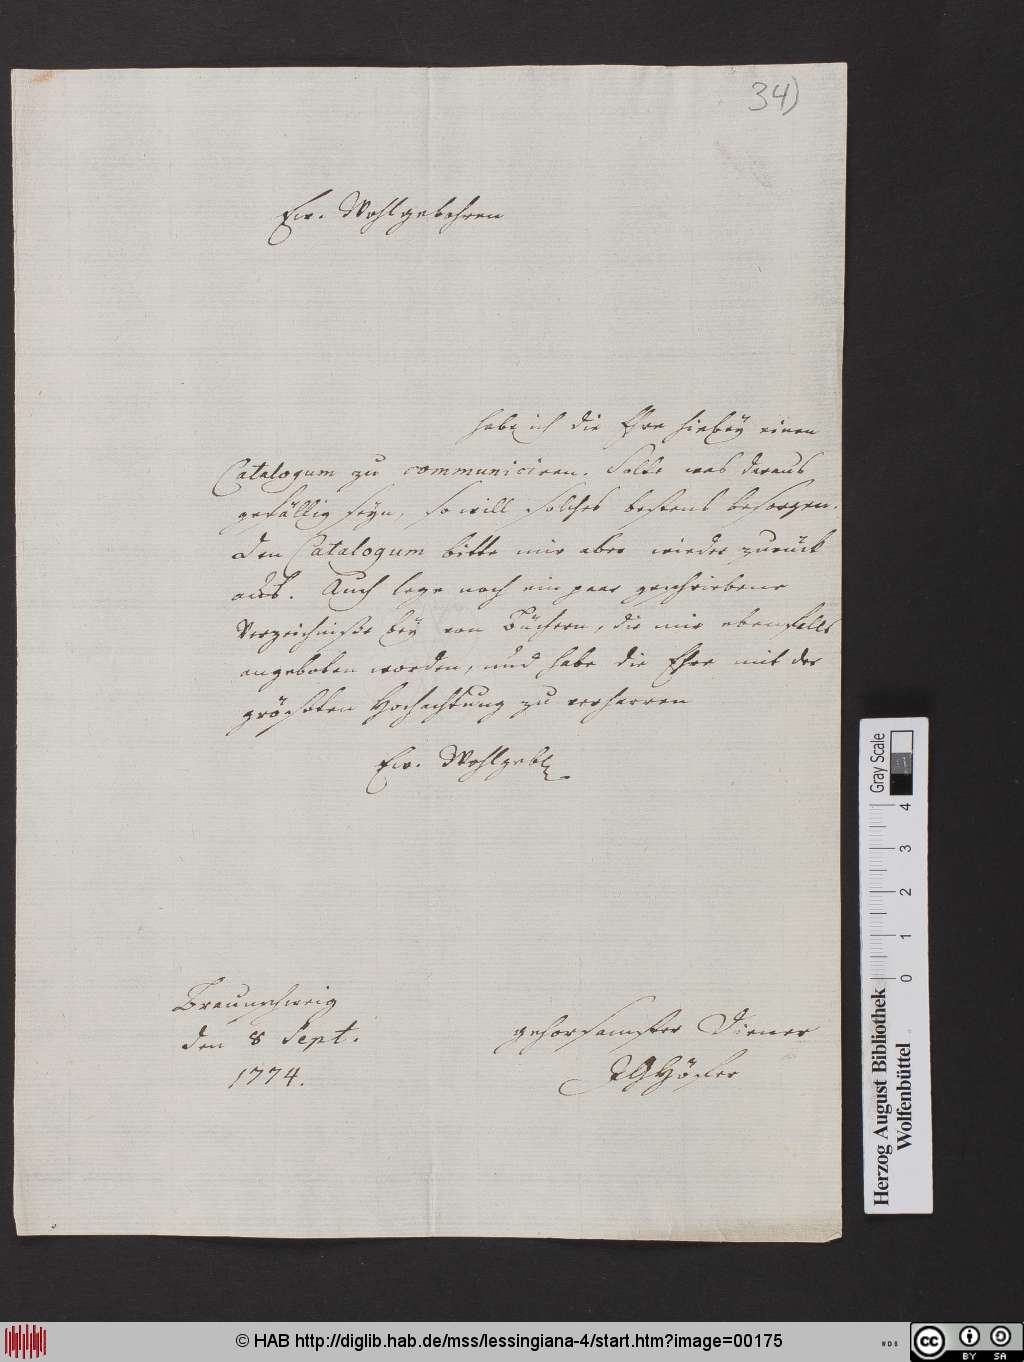 34)
Ew. Wohlgebohren
habe ich die Ehre hiebey einen
Catalogum zu communiciren. Solte was daraus
gefällig seyn, so will solches bestens besorgen.
Den Catalogum bitte mir aber wieder zurück
aus. Auch lege noch ein paar geschriebene
Verzeichniße bey von Büchern, die mir ebenfalls
angeboten worden, und habe die Ehre mit der
größten Hochachtung zu verharren
Ew. Wohlgeb
Braunschweig
den 8 Sept.
1774.
gehorsamster Diener
JGHöfer
Gray Scale
0 1 2 3 4
Herzog August Bibliothek
Wolfenbüttel
© HAB http://diglib.hab.de/mss/lessingiana-4/start.htm?image=00175
WDB
cc BY SA